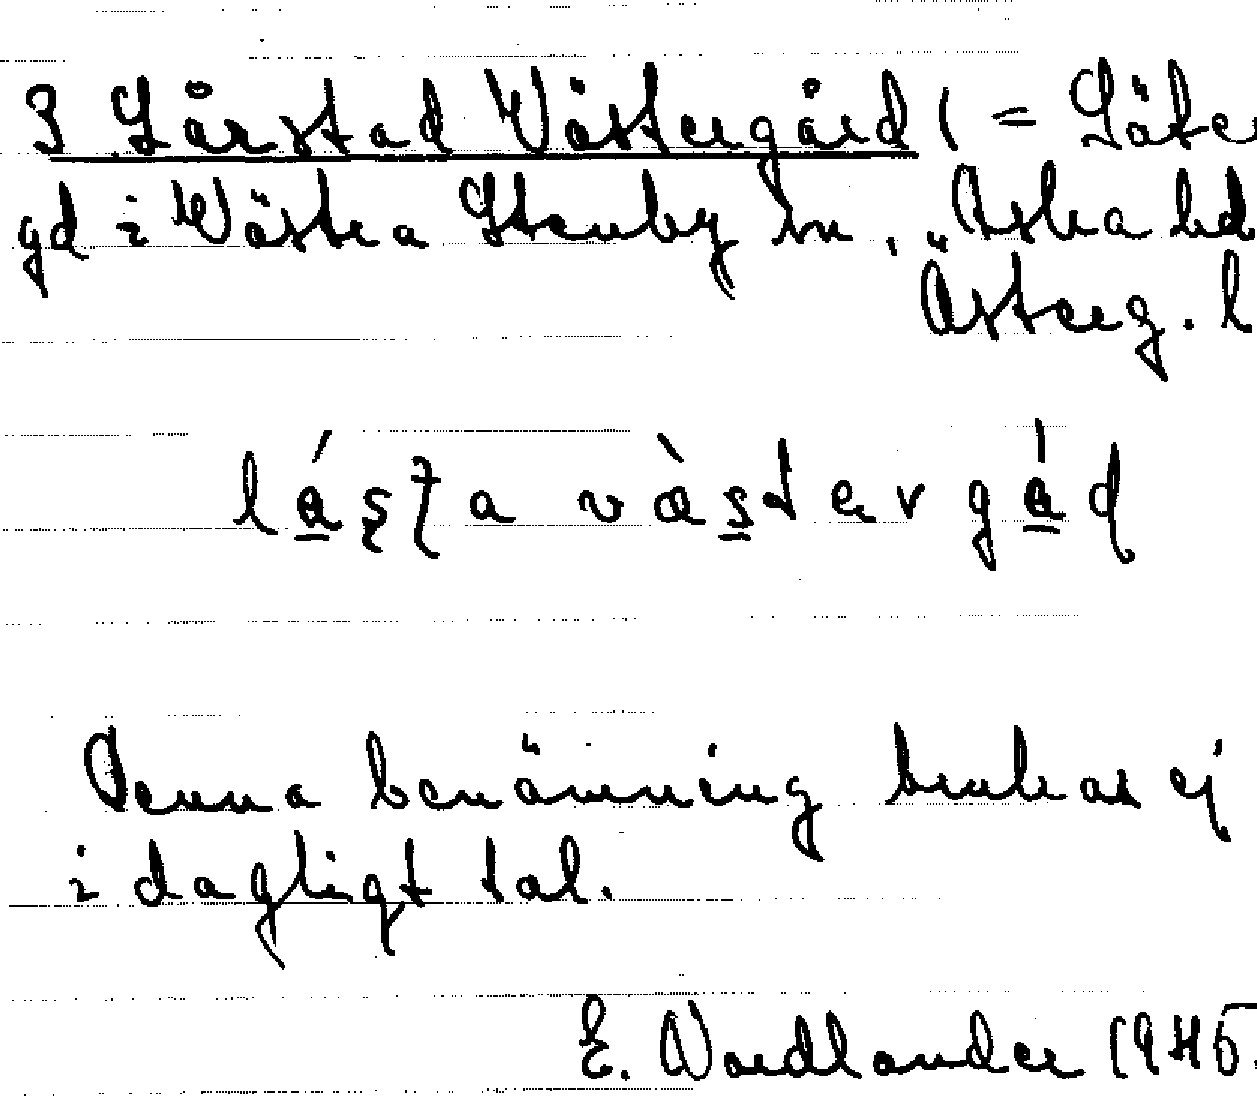 3 Lårstad Västergård 1 = Säte
gd i Västra Stenby sn, Aska hd
Österg. l
lásta vàstervgád
Denna benämning brukas ej
i dagligt tal.
E. Nordlander 1945.